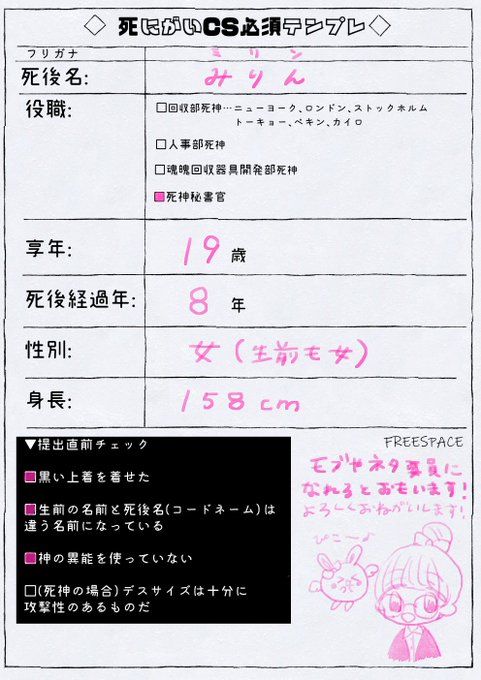 ◇ 死にがいCS必須テンプレ◇
フリガナ ミリン
死後名: みりん
役職: □回収部死神…ニューヨーク、ロンドン、ストックホルム
トーキョー、ペキン、カイロ
□人事部死神
□魂魄回収器具開発部死神
■死神秘書官
享年: 19歳
死後経過年: 8年
性別: 女(生前も女)
身長: 158cm
▼提出直前チェック
■黒い上着を着せた
■生前の名前と死後名(コードネーム)は
違う名前になっている
■神の異能を使っていない
□(死神の場合)デスサイズは十分に
攻撃性のあるものだ
FREESPACE
モブやネタ要員に
なれるとおもいます!
よろしくおねがいします!
ぴこ〜♪